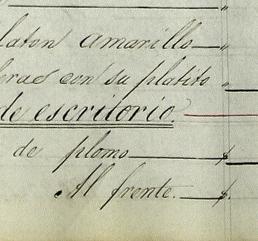 laton amarillo "
eras con su platito "
de escritorio.
de plomo $
Al frente. $